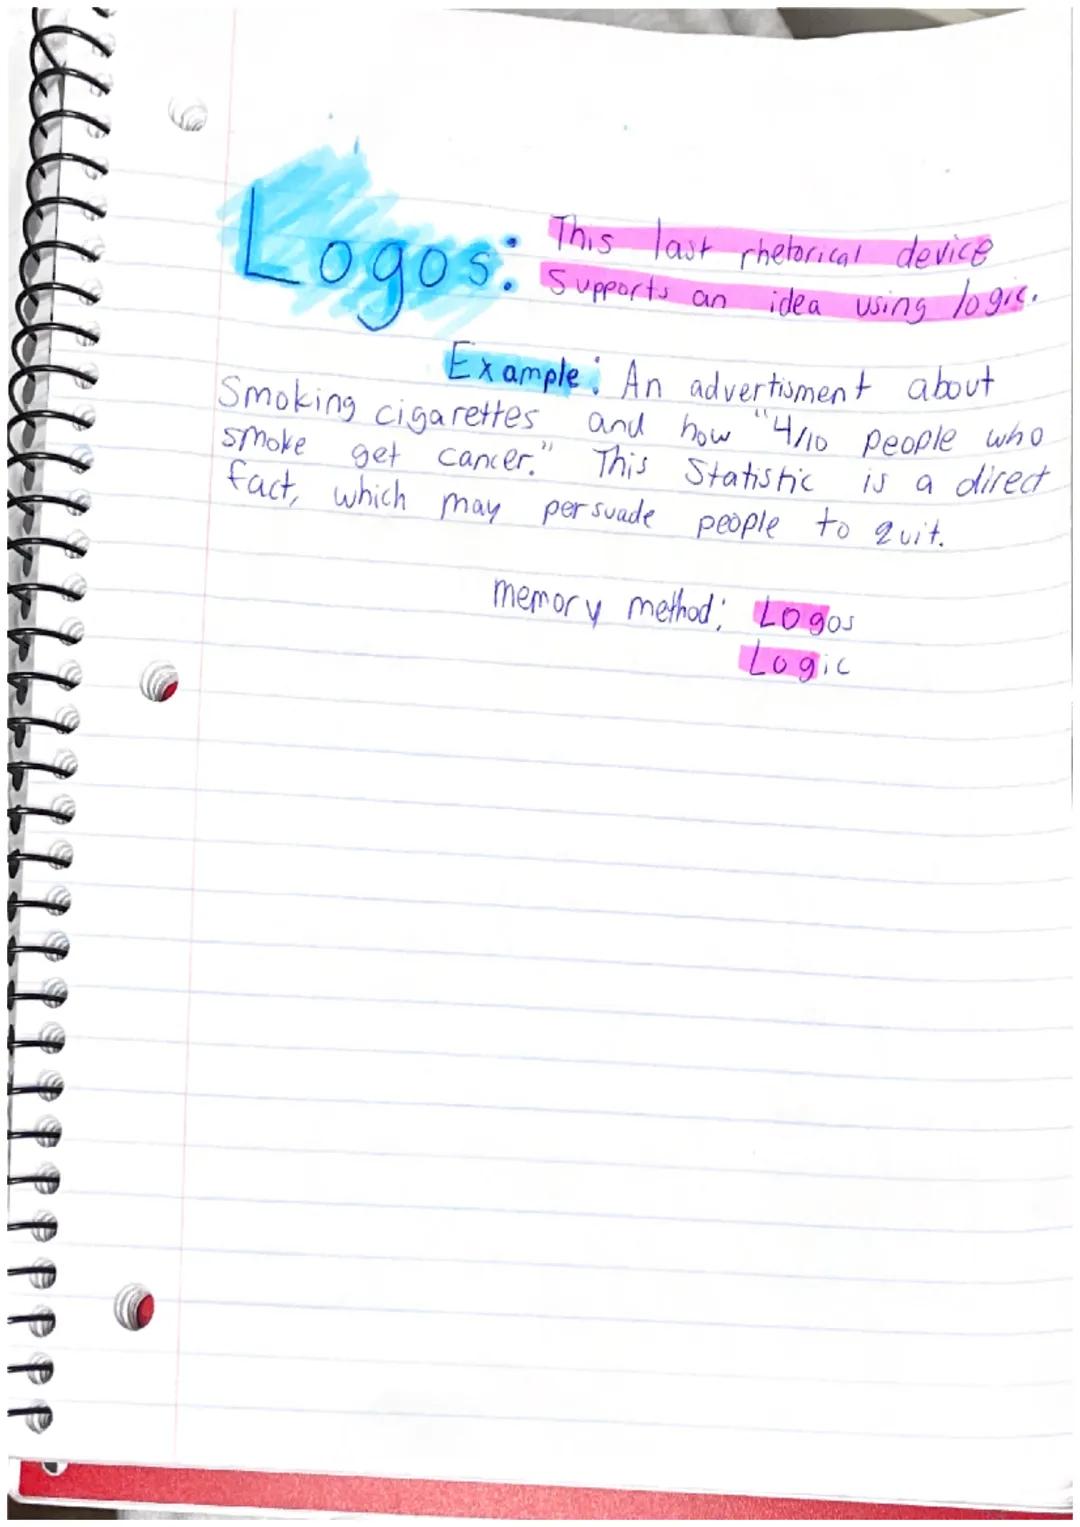 Logos: This last rhetorical device
Supports an idea using logic.
Example: An advertisment about
Smoking cigarettes and how "4/10 people who
smoke get cancer." This Statistic is a direct
fact, which may persuade people to quit.
memory method: Logos
Logic